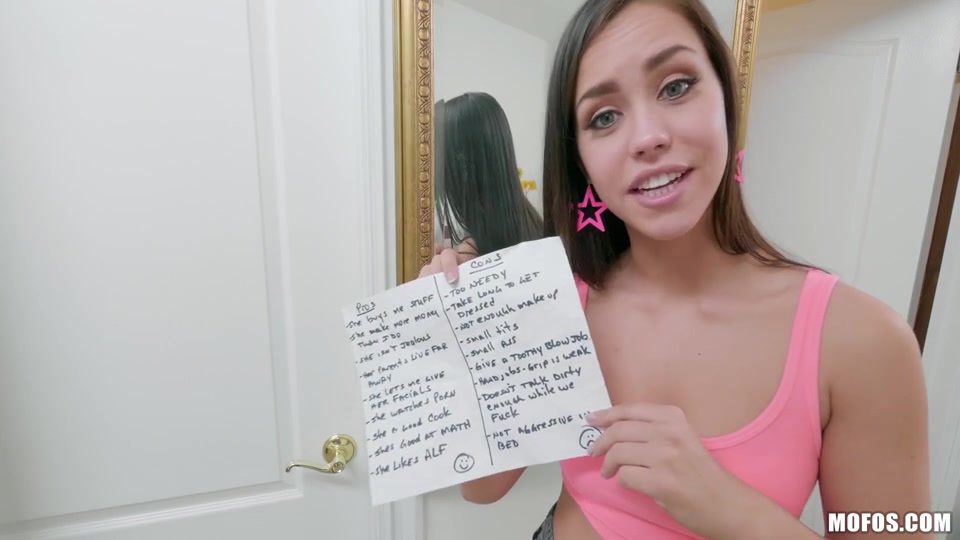 PROS
-She buys me stuff
-She make more money
than I do
-She isn't jealous
-Her parents live far
away
-She lets me give
her facials
-She watches porn
-She a good cook
-Shes good at math
-She likes ALF
CONS
-Too needy
-Take long to get
dressed
-Not enough make up
-Small tits
-Small ass
-Give a toothy blow job
-Hand jobs-grip is weak
-Doesn't talk dirty
enough while we
fuck
-Not aggressive in
bed
MOFOS.COM